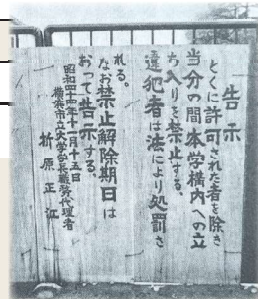 告示
とくに許可された者を除き
当分の間本学構内への立
ち入りを禁止する。
違犯者は法により処罰さ
れる。
なお禁止解除期日は
おって告示する。
昭和四十四年十一月十五日
横浜市立大学学長職務代理者
折原正江